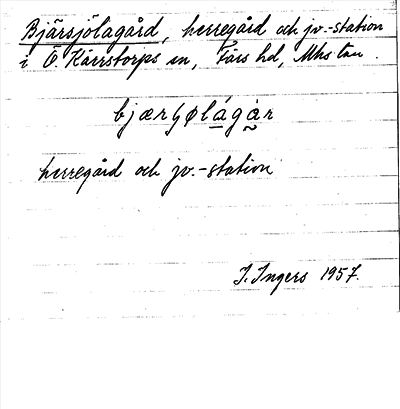 Bjärsjölagård, herregård och jv.-station
i Ö. Kärrstorps sn, Färs hd, Mhs län.
herregård och jv.-station
I. Ingers 1957.